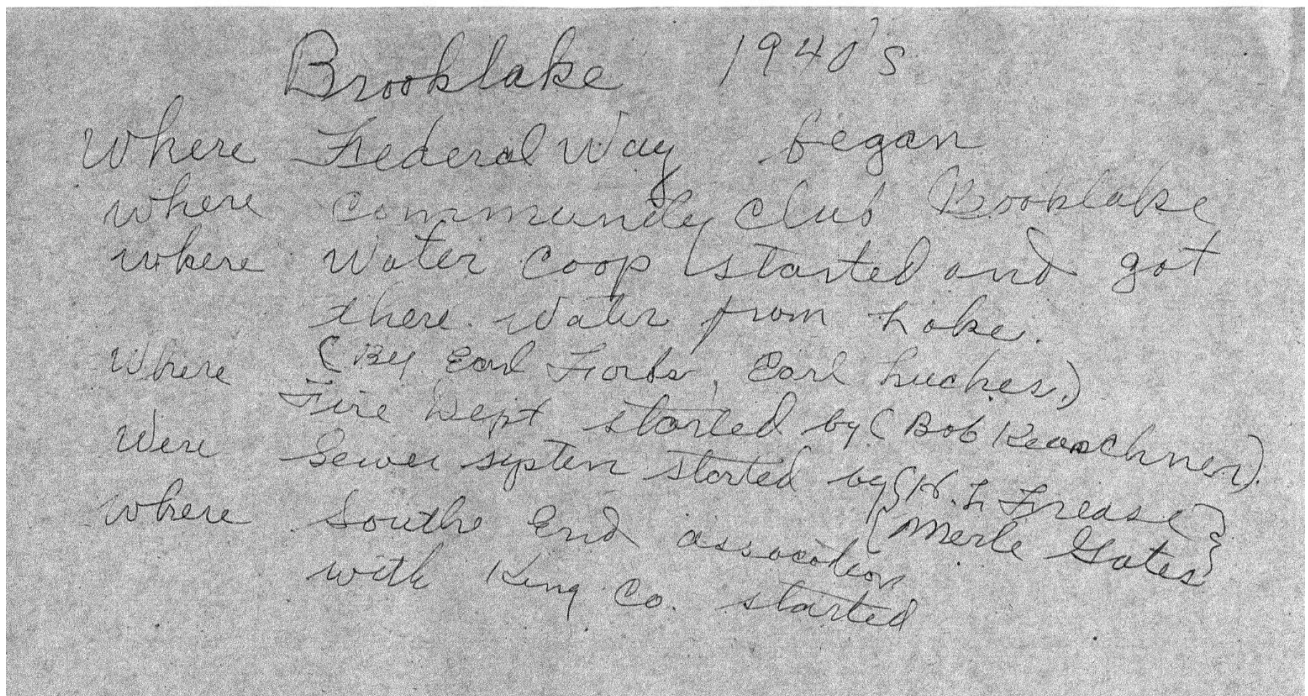 Brooklake 1940's
Where Federal Way began
where community club Brooklake
where Water Coop started and got
there water from Lake.
Where (By Earl Forbs, Earl Luches.)
Fire Dept started by (Bob Kerschner).
Were Sewer system started by {H. L Frease}
{Merle Gates}
where South End assocation
with King Co. started